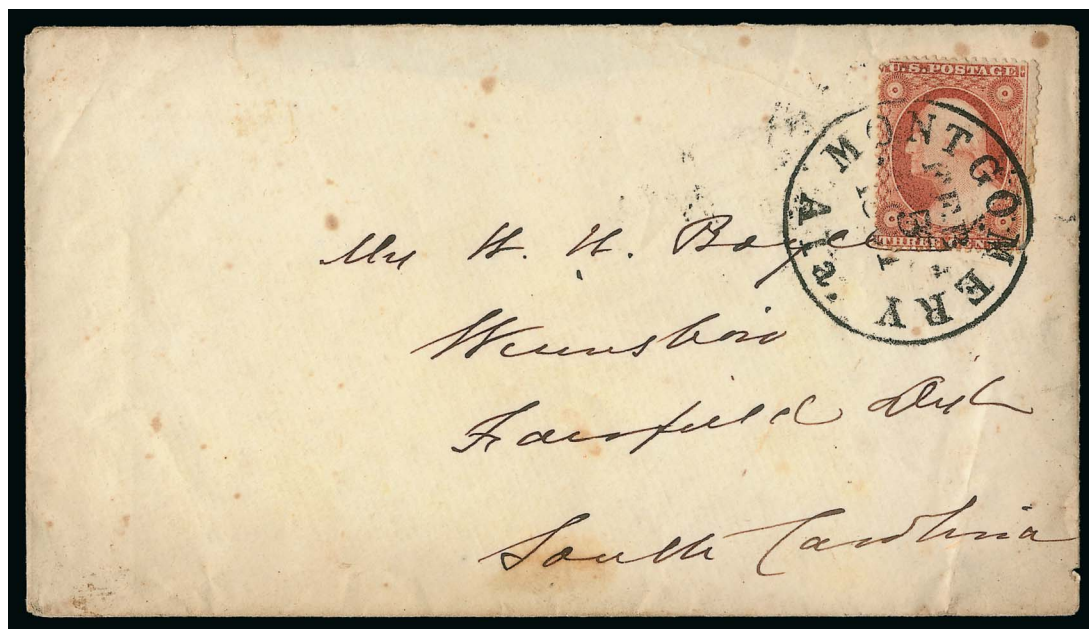 U.S. POSTAGE
THREE CENTS
MONTGOMERY Ala.
FEB
Mr W. W. Boyce
Winnsboro
Fairfield Dist
South Carolina